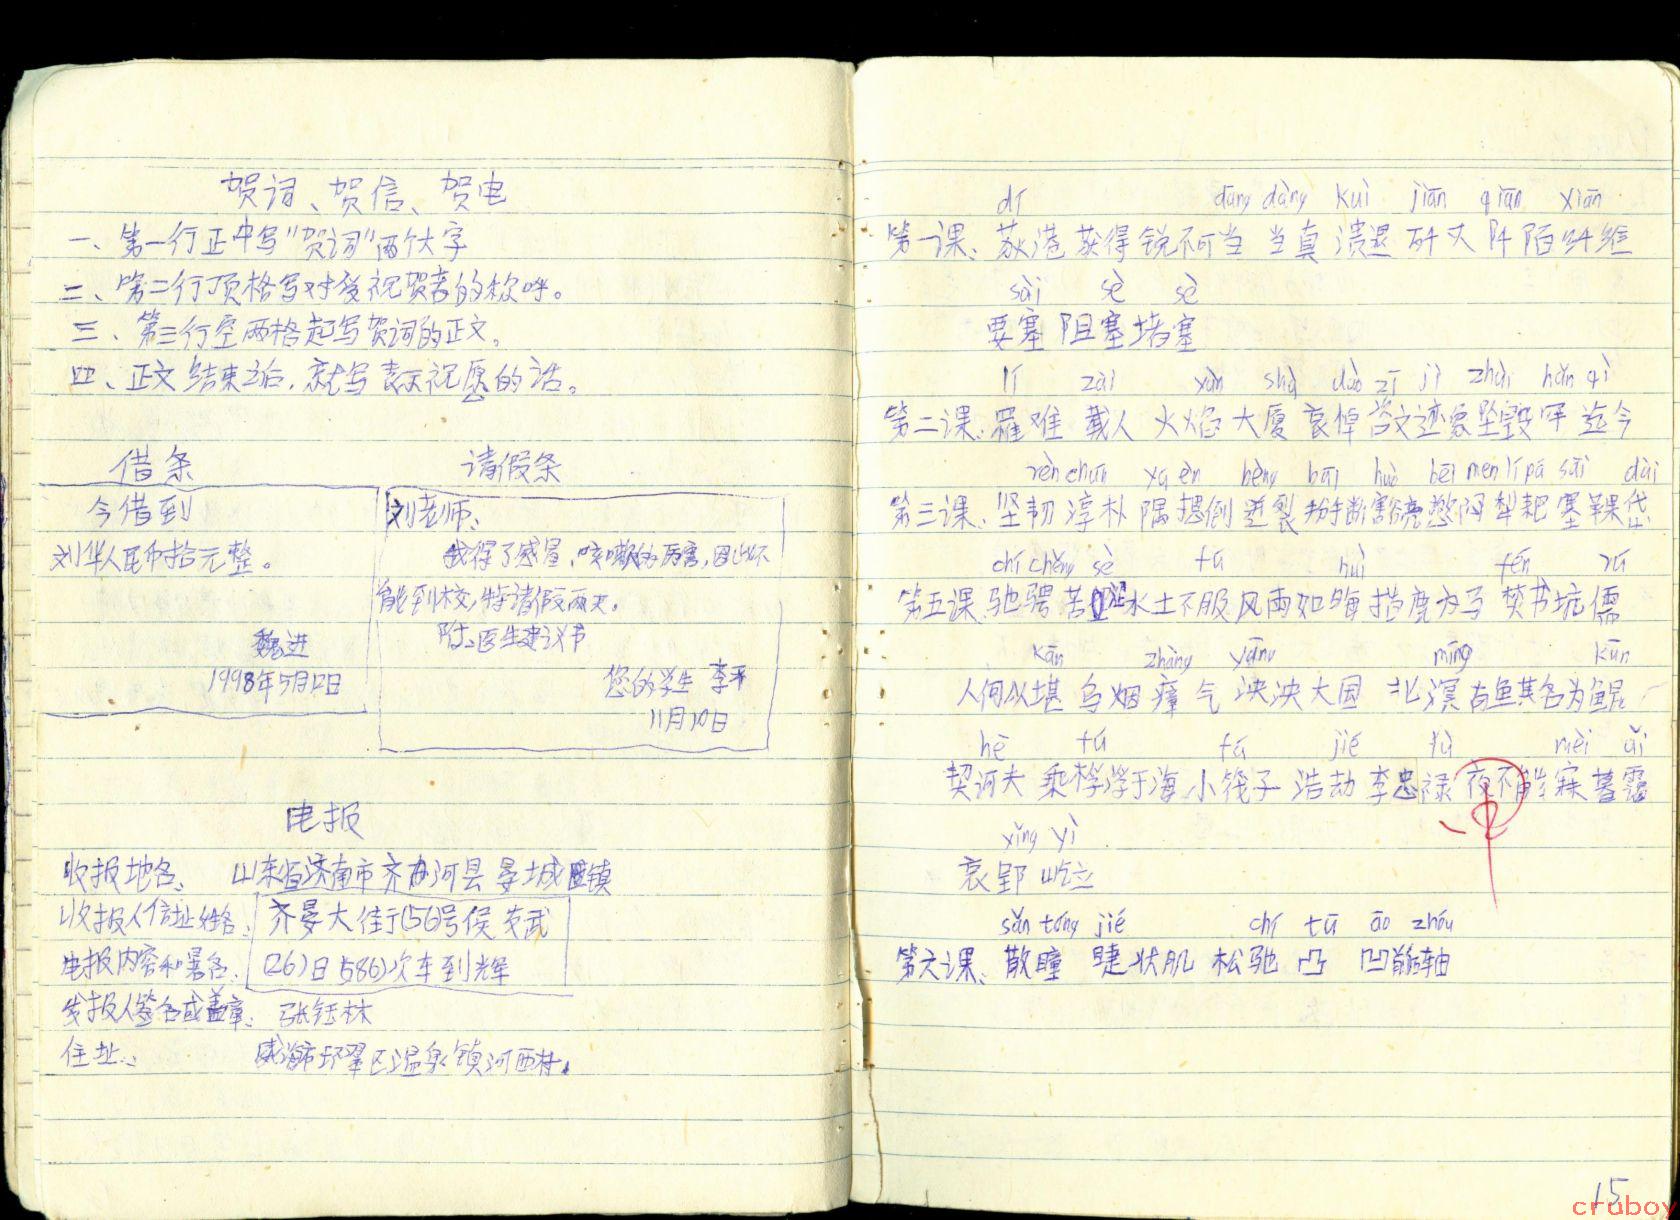 贺词、贺信、贺电
一、第一行正中写"贺词"两个大字
二、第二行顶格写对受祝贺者的称呼。
三、第三行空两格起写贺词的正文。
四、正文结束之后,就写表示祝愿的话。
借条
今借到
刘华人民币拾元整。
魏进
1998年5月12日
请假条
刘老师:
我得了感冒,咳嗽的厉害,因此不
能到校,特请假两天。
附:医生建议书
您的学生 李平
11月10日
电报
收报地名: 山东省济南市齐河县晏城镇
收报人住址姓名: 齐晏大街(56)号侯
电报内容和署名: (26)日(586)次车到辉
发报人签名或盖章: 张钰林
住址: 威海市环翠区温泉镇河西村。
dí dāng dàng kuì jiān qiān xiān
第一课: 荻港 获得 锐不可当 当真 溃退 歼灭 阡陌 纤维
sài sè sè
要塞 阻塞 堵塞
lí zài yàn shà dào zī jì zhuì hǎn qì
第二课: 罹难 载人 火焰 大厦 哀悼 迹象 坠毁 罕 迄今
rèn chún yú èn bèng bāi huò bēi men lí pá sāi dài
第三课: 坚韧 淳朴 隅 摁倒 迸裂 掰断 豁亮 犁耙 塞 袋
chí chěng sè fú huì fén rú
第五课: 驰骋 苦涩 水土不服 风雨如晦 指鹿为马 焚书坑儒
kān zhàng yāng míng kūn
人何以堪 乌烟瘴气 泱泱大国 北溟有鱼其名为鲲
hē fú fá jié lù mèi ǎi
契诃夫 乘桴浮于海 小筏子 浩劫 李忠禄 夜不能寐 暮霭
yǐng yì
哀郢 屹立
sǎn tóng jié chí tū āo zhóu
第六课: 散瞳 睫状肌 松驰 凸 凹 轴
15
cruboy